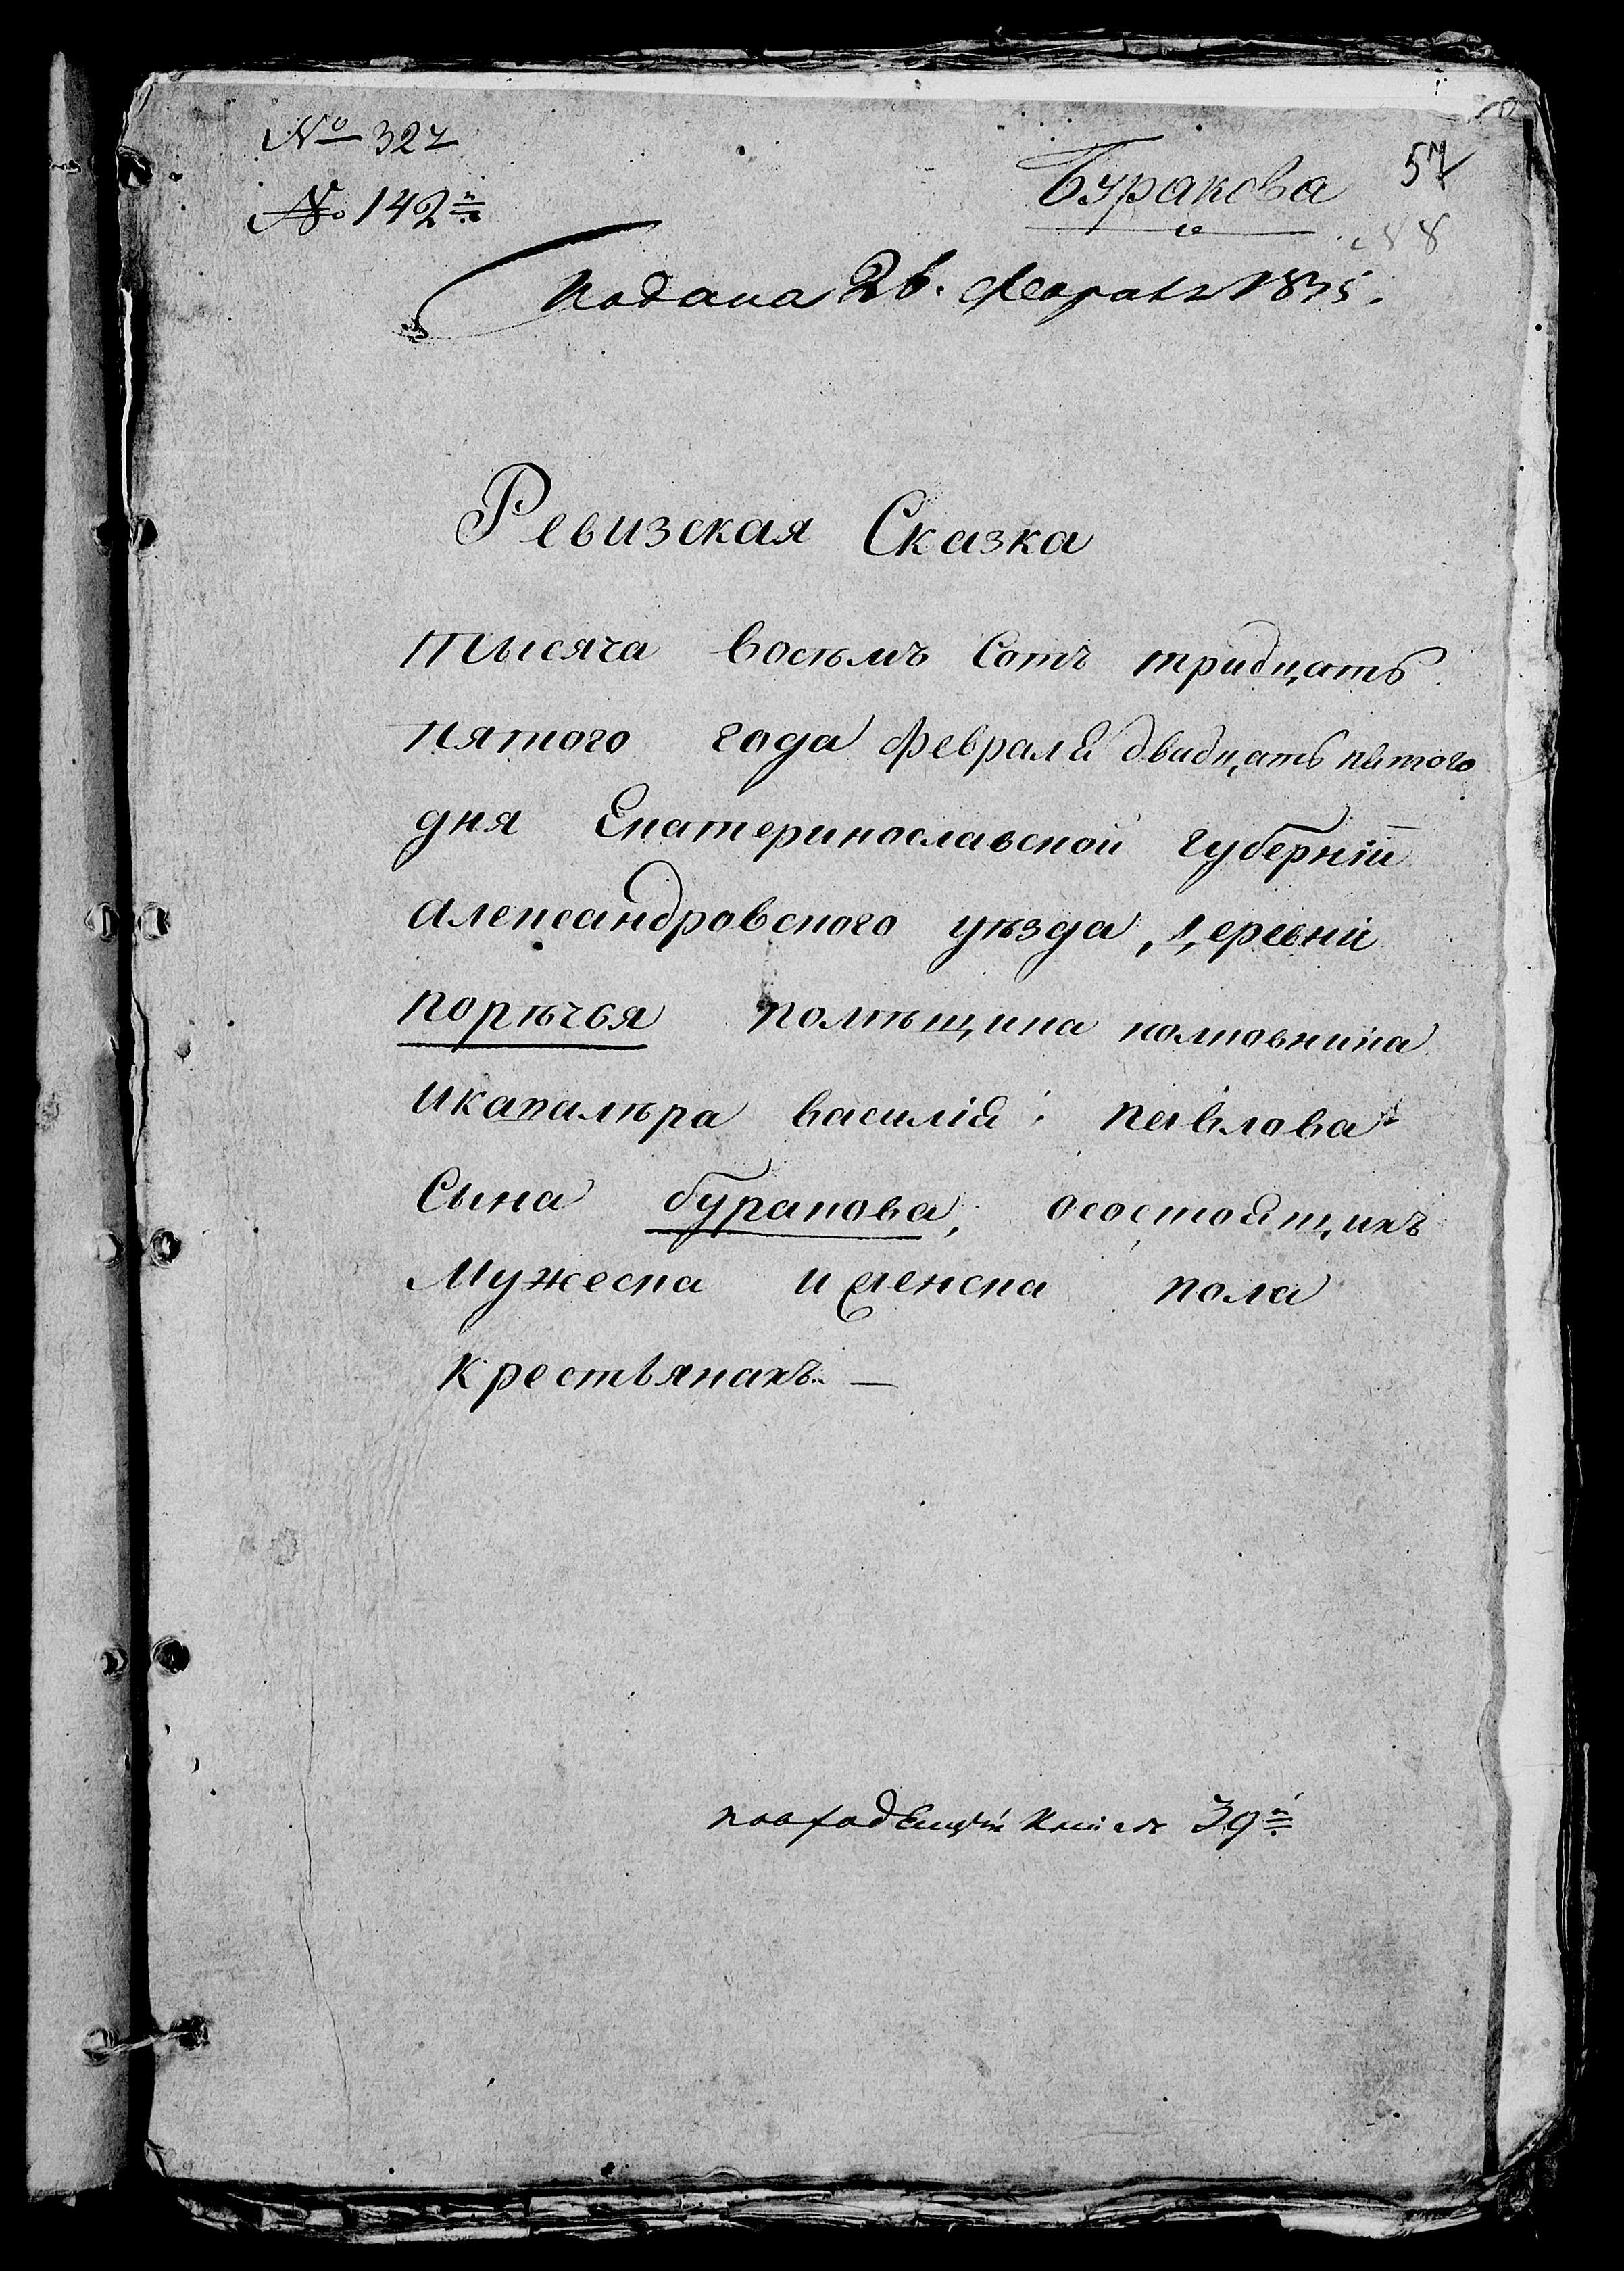 № 327
№ 142й
Буракова 57
Подана 26. Февраля 1835.
Ревизская Сказка
тысяча восемъ Сотъ тридцать
пятого года февраля двадцать пятого
дня Екатеринославской губерніи
александровского уѣзда, деревни
порѣчья помѣщика полковника
икавалѣра василія павлова
Сына буракова, осостоящихъ
мужеска иженска пола
крестьянахъ. —
повходящей книгѣ 39й